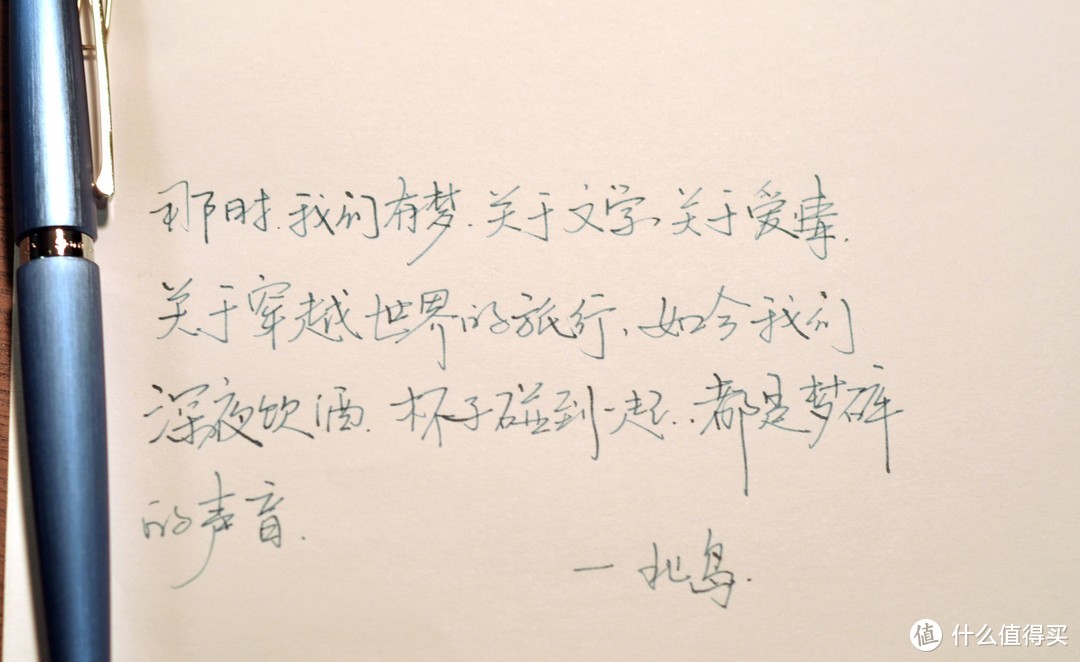 那时.我们有梦.关于文学、关于爱情.
关于穿越世界的旅行、如今我们
深夜饮酒.杯子碰到一起.都是梦碎
的声音.
—北岛.
值 什么值得买